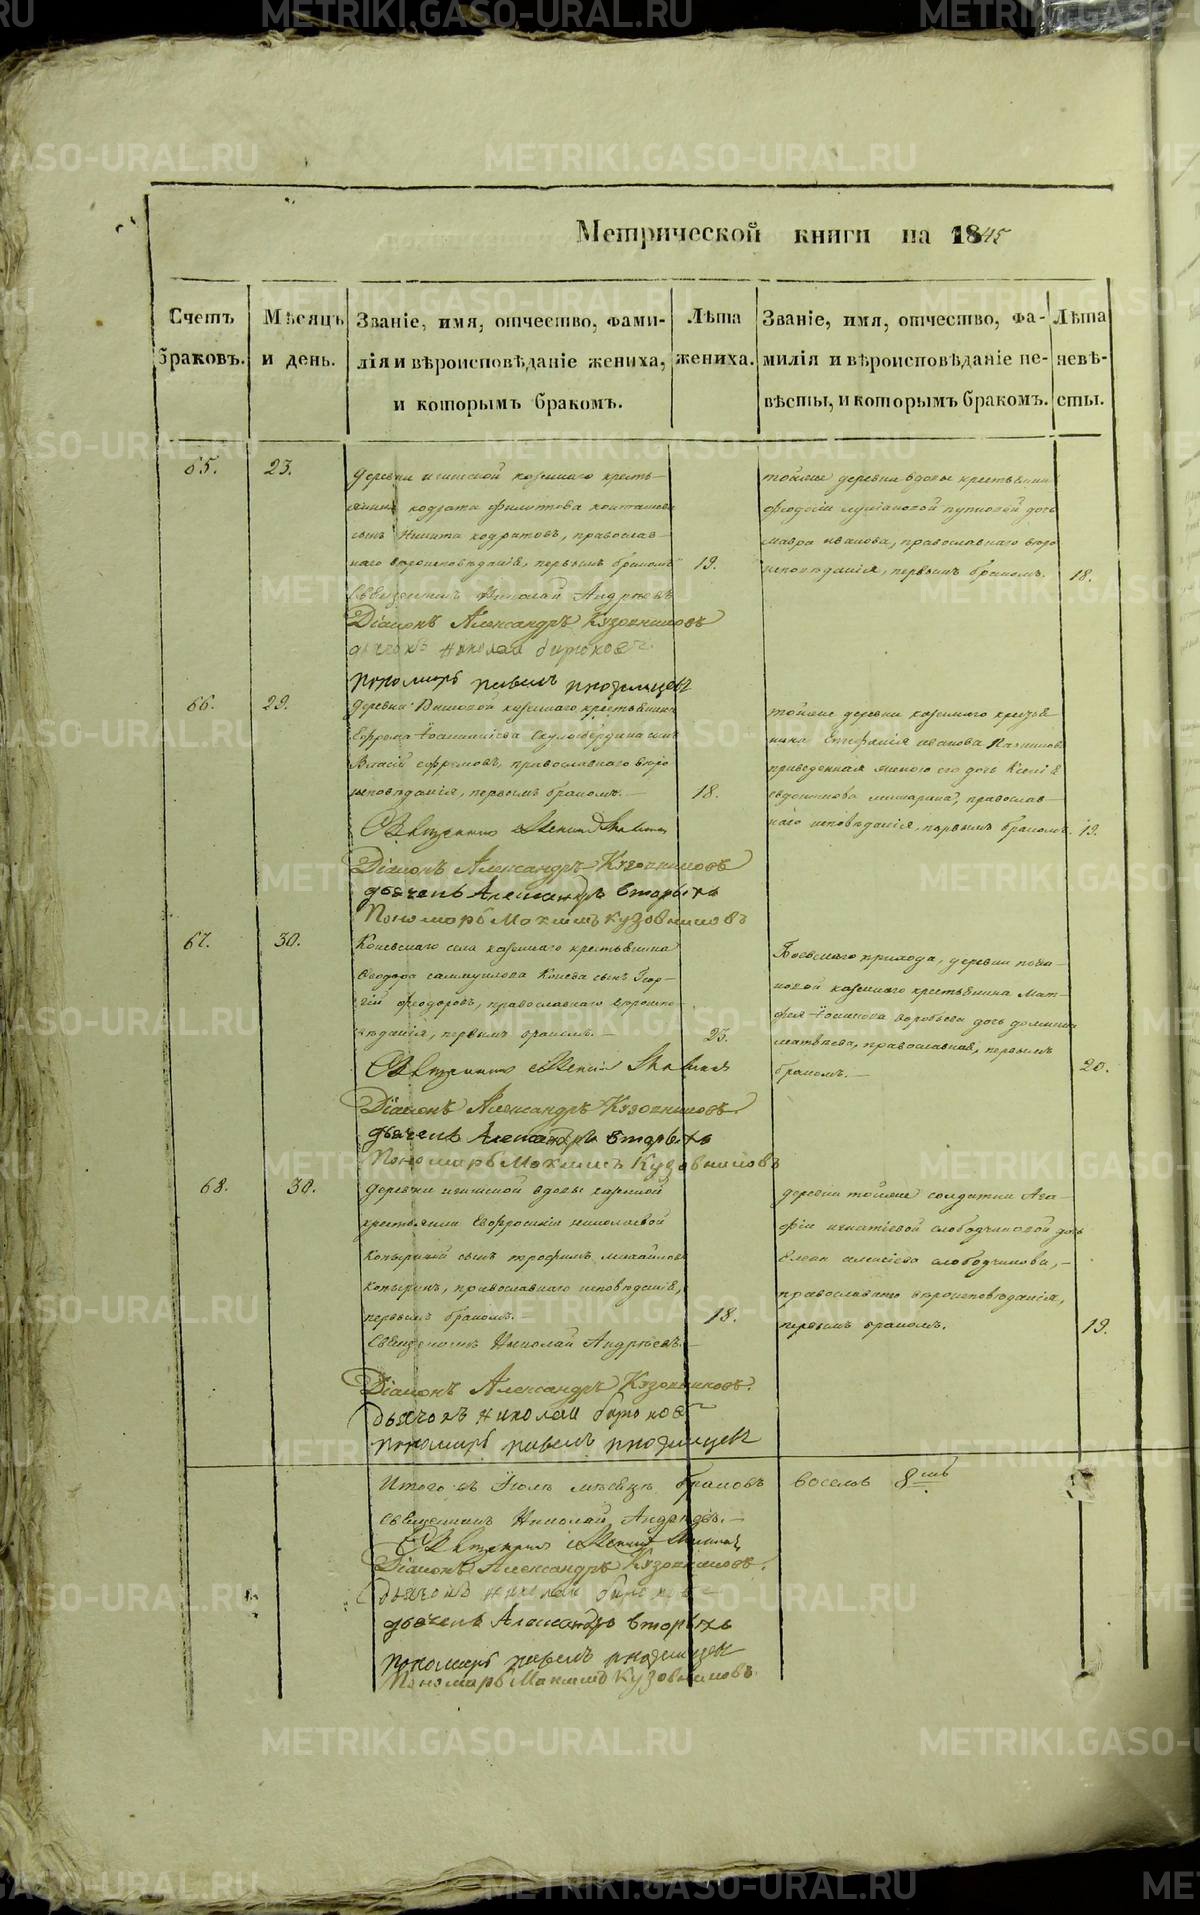 Метрической книги на 1845
Счетъ браковъ.
Мѣсяцъ и день.
Званіе, имя, отчество, фами-
лія и вѣроисповѣданіе жениха,
и которымъ бракомъ.
Лѣта жениха.
Званіе, имя, отчество, фа-
милія и вѣроисповѣданіе не-
вѣсты, и которымъ бракомъ.
Лѣта невѣ-
сты.
65.
23.
деревни казеннаго кресть-
янина кодрата
сынъ Никита кодратовъ, православ-
наго вѣроисповѣданія, первымъ бракомъ
19.
Священникъ Николай Андреевъ
Діаконъ Александръ Кузовниковъ
дьячокъ николай бирюковъ
пономарь павелъ
тойже деревни вдовы крестьянки
феодосіи дочь
мавра иванова, православнаго вѣро
исповѣданія, первымъ бракомъ.
18.
66.
29.
деревни казеннаго крестьянина
Ефрема сынъ
Власій ефремовъ, православнаго вѣро
исповѣданія, первымъ бракомъ. —
18.
Священникъ
Діаконъ Александръ Кузовниковъ
дьячекъ Александръ вторыхъ
Пономарь Максимъ Кузовниковъ
тойже деревни казеннаго крестья
нина Епифанія иванова
приведенная женою его дочь Ксенія
православ-
наго исповѣданія, первымъ бракомъ.
19.
67.
30.
Коневскаго села казеннаго крестьянина
Феодора самуилова Конева сынъ Геор-
гій феодоровъ, православнаго вѣроиспо
вѣданія, первымъ бракомъ. —
23.
Священникъ
Діаконъ Александръ Кузовниковъ.
дьячекъ Александръ вторыхъ
Пономарь Максимъ Кузовниковъ
прихода, деревни
казеннаго крестьянина Мат-
фея воробьева дочь домника
матвѣева, православная, первымъ
бракомъ. —
20.
68.
30.
деревни вдовы казенной
крестьянки Евфросиніи николаевой
Копыриной сынъ трофимъ михайловъ
копыринъ, православнаго исповѣданія,
первымъ бракомъ.
18.
Священникъ Николай Андреевъ. —
Діаконъ Александръ Кузовниковъ.
дьячокъ николай бирюковъ
пономарь павелъ
деревни тойже солдатки Ага-
фіи игнатіевой слободчиковой дочь
алексіева слободчикова, —
православнаго вѣроисповѣданія,
первымъ бракомъ.
19.
Итого въ Іюлѣ мѣсяцѣ браковъ восемь 8мь
Священникъ Николай Андреевъ. —
Священникъ
Діаконъ Александръ Кузовниковъ.
дьячокъ николай бирюковъ
дьячекъ Александръ вторыхъ
пономарь павелъ
Пономарь Максимъ Кузовниковъ.
METRIKI.GASO-URAL.RU